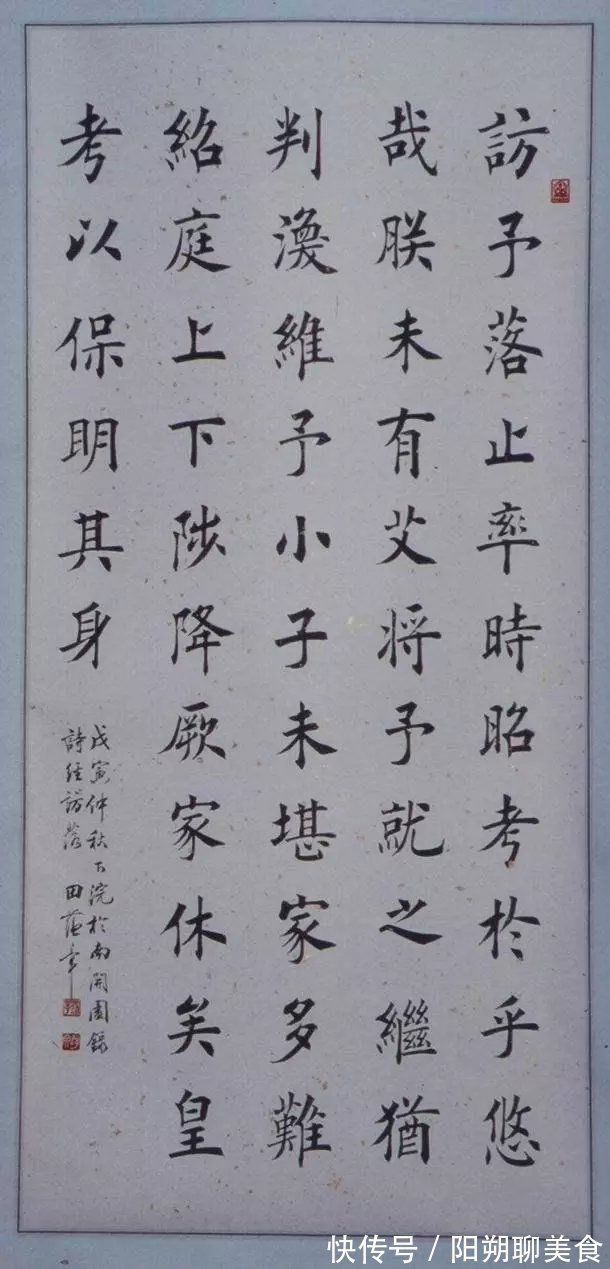 訪予落止率時昭考於乎悠
哉朕未有艾將予就之繼猶
判渙維予小子未堪家多難
紹庭上下陟降厥家休矣皇
考以保明其身
戊寅仲秋下浣於南開園錄
詩經訪落 田蘊章
快传号/阳朔聊美食